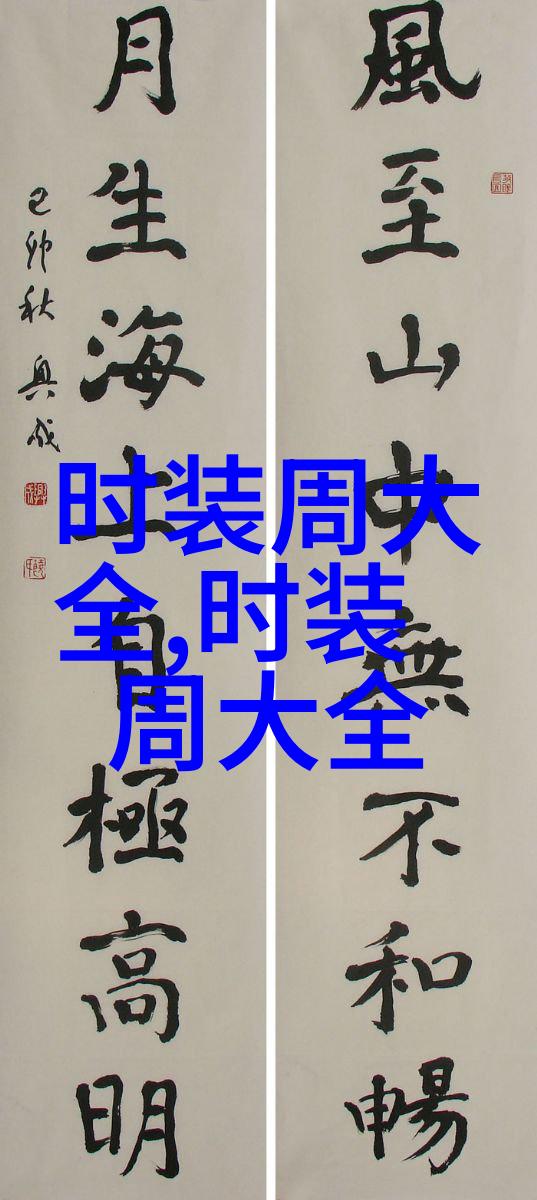 風至山中無不和暢
月生海上自極高明
己卯秋 興成
时装周大
全,时装
周大全